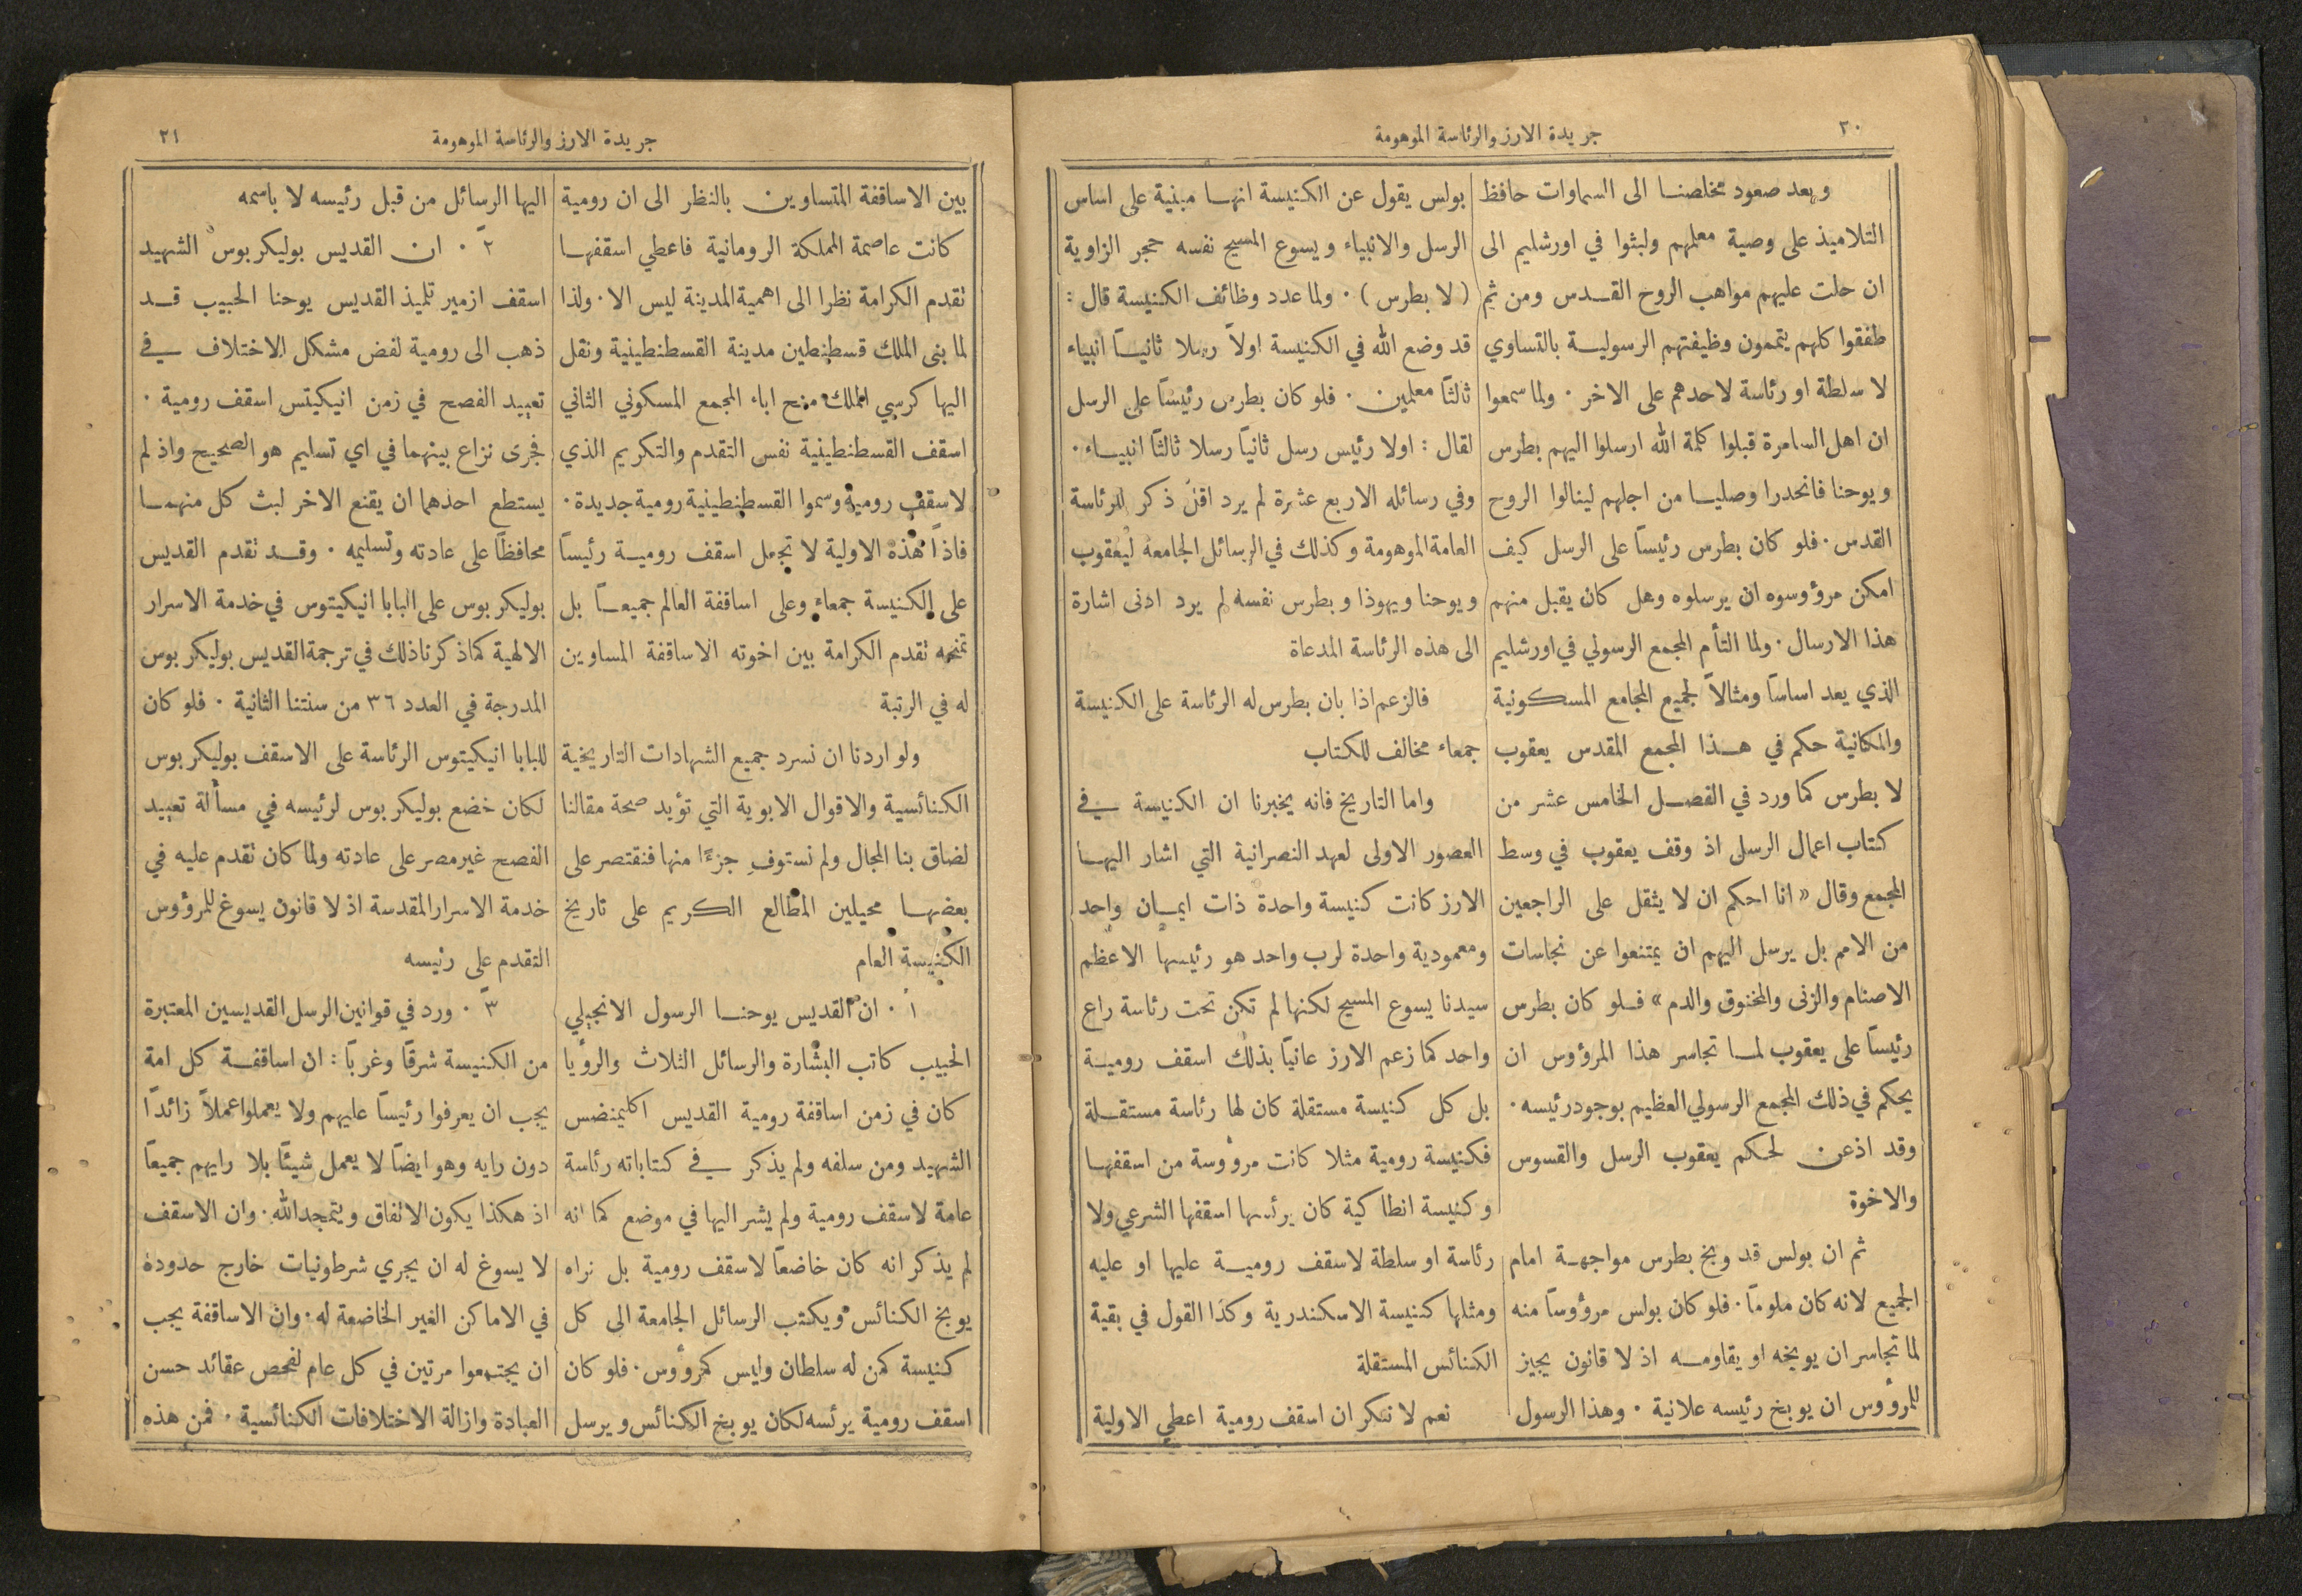 ٢٠
جريدة الارز والرئاسة الموهومة
وبعد صعود مخلصنا الى السماوات حافظ
التلاميذ على وصية معلمهم ولبثوا في اورشليم الى
ان حلت عليهم مواهب الروح القدس ومن ثم
طفقوا كلهم يتممون وظيفتهم الرسولية بالتساوي
لا سلطة او رئاسة لاحدهم على الاخر . ولما سمعوا
ان اهل السامرة قبلوا كلمة الله ارسلوا اليهم بطرس
ويوحنا فانحدرا وصليا من اجلهم لينالوا الروح
القدس . فلو كان بطرس رئيساً على الرسل كيف
امكن مرؤوسوه ان يرسلوه وهل كان يقبل منهم
هذا الارسال . ولما التأم المجمع الرسولي في اورشليم
الذي يعد اساساً ومثالاً لجميع المجامع المسكونية
والمكانية حكم في هذا المجمع المقدس يعقوب
لا بطرس كما ورد في الفصل الخامس عشر من
كتاب اعمال الرسل اذ وقف يعقوب في وسط
المجمع وقال « انا احكم ان لا يثقل على الراجعين
من الامم بل يرسل اليهم ان يمتنعوا عن نجاسات
الاصنام والزنى والمخنوق والدم » فلو كان بطرس
رئيساً على يعقوب لما تجاسر هذا المرؤوس ان
يحكم في ذلك المجمع الرسولي العظيم بوجود رئيسه .
وقد اذعن لحكم يعقوب الرسل والقسوس
والاخوة
ثم ان بولس قد وبخ بطرس مواجهة امام
الجميع لانه كان ملوماً . فلو كان بولس مرؤوساً منه
لما تجاسر ان يوبخه او يقاومه اذ لا قانون يجيز
للمرؤوس ان يوبخ رئيسه علانية . وهذا الرسول
بولس يقول عن الكنيسة انها مبنية على اساس
الرسل والانبياء ويسوع المسيح نفسه حجر الزاوية
( لا بطرس ) . ولما عدد وظائف الكنيسة قال :
قد وضع الله في الكنيسة اولاً رسلا ثانياً انبياء
ثالثاً معلمين . فلو كان بطرس رئيساً على الرسل
لقال : اولا رئيس رسل ثانياً رسلا ثالثاً انبياء .
وفي رسائله الاربع عشرة لم يرد اقل ذكر للرئاسة
العامة الموهومة وكذلك في الرسائل الجامعة ليعقوب
ويوحنا ويهوذا وبطرس نفسه لم يرد ادنى اشارة
الى هذه الرئاسة المدعاة
فالزعم اذا بان بطرس له الرئاسة على الكنيسة
جمعاء مخالف للكتاب
واما التاريخ فانه يخبرنا ان الكنيسة في
العصور الاولى لعهد النصرانية التي اشار اليها
الارز كانت كنيسة واحدة ذات ايمان واحد
ومعمودية واحدة لرب واحد هو رئيسها الاعظم
سيدنا يسوع المسيح لكنها لم تكن تحت رئاسة راع
واحد كما زعم الارز عانياً بذلك اسقف رومية
بل كل كنيسة مستقلة كان لها رئاسة مستقلة
فكنيسة رومية مثلا كانت مرؤوسة من اسقفها
وكنيسة انطاكية كان يرئسها اسقفها الشرعي ولا
رئاسة او سلطة لاسقف رومية عليها او عليه
ومثلها كنيسة الاسكندرية وكذا القول في بقية
الكنائس المستقلة
نعم لا ننكر ان اسقف رومية اعطي الاولية
جريدة الارز والرئاسة الموهومة
٢١
بين الاساقفة المتساوين بالنظر الى ان رومية
كانت عاصمة المملكة الرومانية فاعطي اسقفها
تقدم الكرامة نظرا الى اهمية المدينة ليس الا . ولذا
لما بنى الملك قسطنطين مدينة القسطنطينية ونقل
اليها كرسي الملك منح اباء المجمع المسكوني الثاني
اسقف القسطنطينية نفس التقدم والتكريم الذي
لاسقف رومية وسموا القسطنطينية رومية جديدة .
فاذاً هذه الاولية لا تجعل اسقف رومية رئيساً
على الكنيسة جمعاء وعلى اساقفة العالم جميعاً بل
تمنحه تقدم الكرامة بين اخوته الاساقفة المساوين
له في الرتبة
ولو اردنا ان نسرد جميع الشهادات التاريخية
الكنائسية والاقوال الابوية التي تؤيد صحة مقالنا
لضاق بنا المجال ولم نستوفِ جزءًا منها فنقتصر على
بعضها محيلين المطالع الكريم على تاريخ
الكنيسة العام
اً . ان القديس يوحنا الرسول الانجيلي
الحبيب كاتب البشارة والرسائل الثلاث والرؤيا
كان في زمن اساقفة رومية القديس اكليمنضس
الشهيد ومن سلفه ولم يذكر في كتاباته رئاسة
عامة لاسقف رومية ولم يشر اليها في موضع كما انه
لم يذكر انه كان خاضعاً لاسقف رومية بل نراه
يوبخ الكنائس ويكتب الرسائل الجامعة الى كل
كنيسة كمن له سلطان وليس كمرؤوس . فلو كان
اسقف رومية يرئسه لكان يوبخ الكنائس ويرسل
اليها الرسائل من قبل رئيسه لا باسمه
٢ً . ان القديس بوليكربوس الشهيد
اسقف ازمير تلميذ القديس يوحنا الحبيب قد
ذهب الى رومية لفض مشكل الاختلاف في
تعييد الفصح في زمن انيكيتس اسقف رومية .
فجرى نزاع بينهما في اي تسليم هو الصحيح واذ لم
يستطع احدهما ان يقنع الاخر لبث كل منهما
محافظاً على عادته وتسليمه . وقد تقدم القديس
بوليكربوس على البابا انيكيتوس في خدمة الاسرار
الالهية كما ذكرنا ذلك في ترجمة القديس بوليكربوس
المدرجة في العدد ٣٦ من سنتنا الثانية . فلو كان
للبابا انيكيتوس الرئاسة على الاسقف بوليكربوس
لكان خضع بوليكربوس لرئيسه في مسألة تعييد
الفصح غير مصر على عادته ولما كان تقدم عليه في
خدمة الاسرار المقدسة اذ لا قانون يسوغ للمرؤوس
التقدم على رئيسه
٣ً . ورد في قوانين الرسل القديسين المعتبرة
من الكنيسة شرقاً وغرباً : ان اساقفة كل امة
يجب ان يعرفوا رئيساً عليهم ولا يعملوا عملاً زائداً
دون رايه وهو ايضاً لا يعمل شيئاً بلا رايهم جميعاً
اذ هكذا يكون الاتفاق ويتمجد الله . وان الاسقف
لا يسوغ له ان يجري شرطونيات خارج حدوده
في الاماكن الغير الخاضعة له . وان الاساقفة يجب
ان يجتمعوا مرتين في كل عام لفحص عقائد حسن
العبادة وازالة الاختلافات الكنائسية . فمن هذه